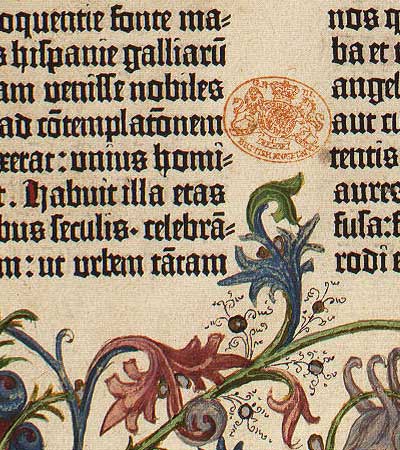 oquentie fonte ma-
s hispanie galliarū
am venisse nobiles
ad cōtemplatōnem
xerat: unius homi-
t. Habuit illa etas
bus seculis· celebrā-
m: ut urbem tātam
nos q
ba et t
angel
aut cu
tentis
aures
fusa: f
rodi e
BRITISH MUSEUM